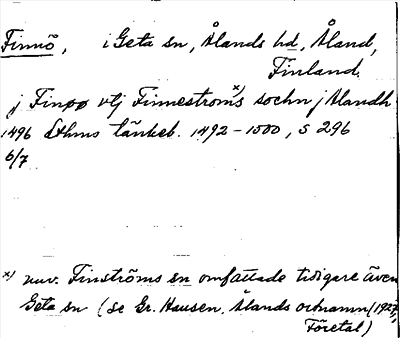 Finnö, i Geta sn, Ålands hd, Åland,
Finland.
j Finøø vtj Finnestroms x) sochn j Alandh
1496 Sthms tänkeb. 1492-1500, s 296
6/7
x) nuv. Finströms sn omfattade tidigare även
Geta sn (se Gr. Hausen, Ålands ortnamn (1927,
Företal)